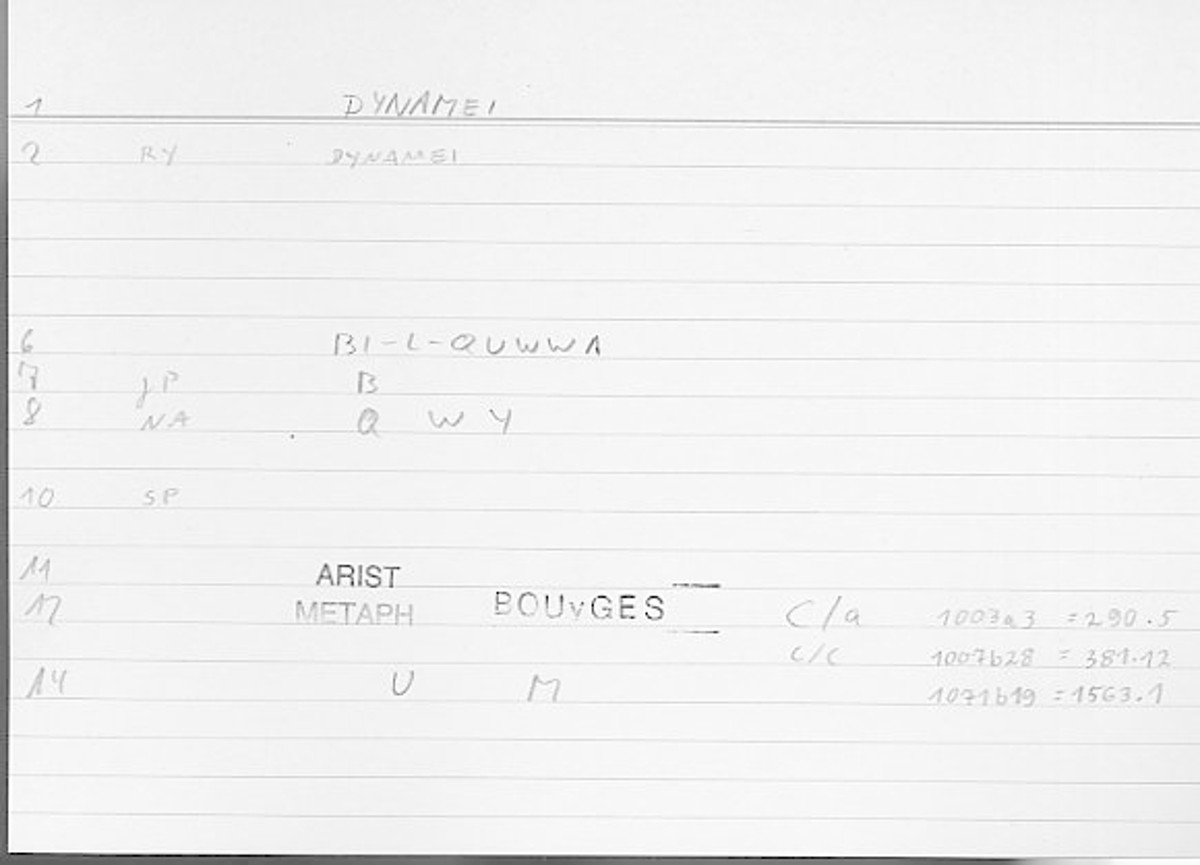 1 DYNAMEI
2 RY DYNAMEI
6 BI-L-QUWWA
7 JP B
8 NA Q W Y
10 SP
11 ARIST
12 METAPH BOUYGES C/a 1003a3 =290.5
C/C 1007b28 = 381.12
14 U M 1071b19 =1563.1